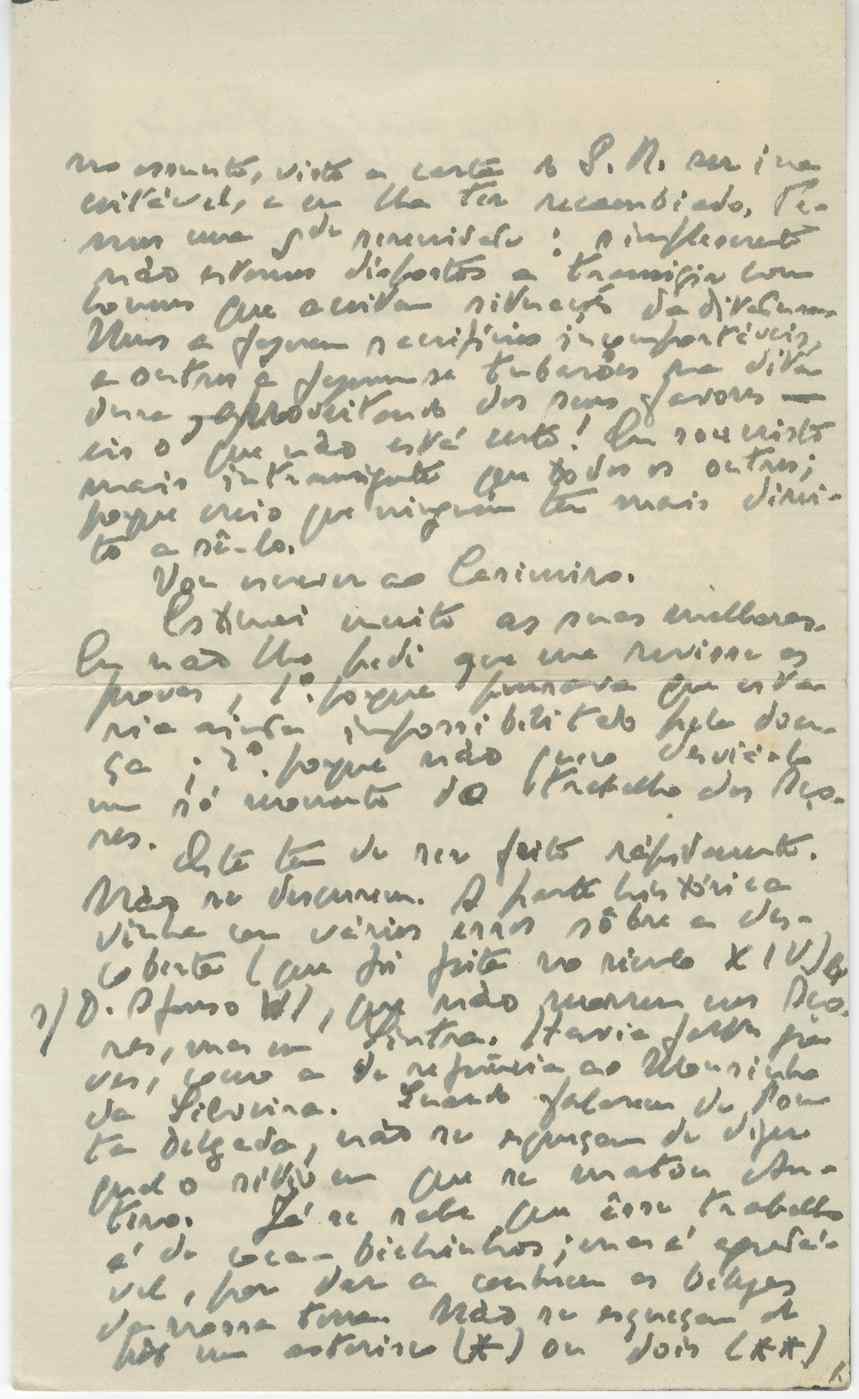 no assunto, visto a carta do S. R. ser ina
ceitável, e eu lha ter recambiado. Te-
mos uma gde serenidade: simplesmente
não estamos dispostos a transigir com
homens que aceitam situações da ditadura.
Uns a fazerem sacrifícios incomportáveis,
e outros a fazerem-se tubarões na dita
dura, aproveitando dos seus favores —
eis o que não está certo! Eu sou nisto
mais intransigente que todos os outros;
porque creio que ninguém tem mais direi-
to a sê-lo.
Vou escrever ao Casimiro.
Estimei muito as suas melhoras.
Eu não lhe pedi que me revisse as
provas, 1º. porque pensava que esta
ria ainda impossibilitado pela doen-
ça; 2º. porque não quero desviá-lo
um só momento do trabalho dos Aço-
res.
Este tem de ser feito rapidamente.
Não se descurem. A parte histórica
vinha com vários erros sôbre a des-
coberta (que foi feita no século XIV) e
s/ D. Afonso VI, que não morreu nos Aço-
res, mas em Sintra. Havia faltas gra
ves, como a de referência ao Mousinho
da Silveira. Quando falarem de Pon
ta Delgada, não se esqueçam de dizer
qual o sítio em que se matou An-
tero. Já se sabe que êsse trabalho
é de caca-bichinhos; mas é agradá-
vel, por dar a conhecer as belezas
da nossa terra. Não se esqueçam de
pôr um asterisco (*) ou dois (**)